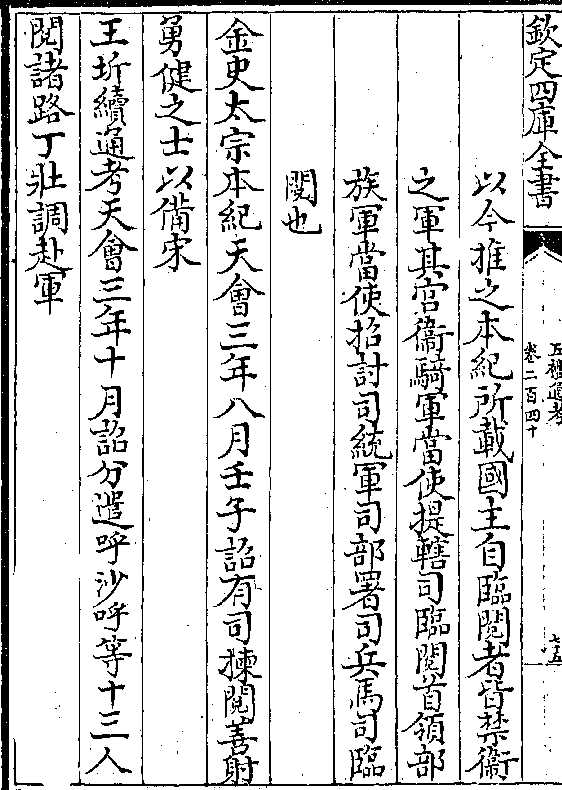 欽定四庫全書
五禮通考
卷二百四十
七五
以今推之本紀所載國主自臨閱者皆禁衞
之軍其宫衞騎軍當使提轄司臨閱首領部
族軍當使招討司統軍司部署司兵馬司臨
閱也
金史太宗本紀天會三年八月壬子詔有司揀閱善射
勇健之士以備宋
王圻續通考天會三年十月詔分遣呼沙呼等十三人
閱諸路丁壯調赴軍